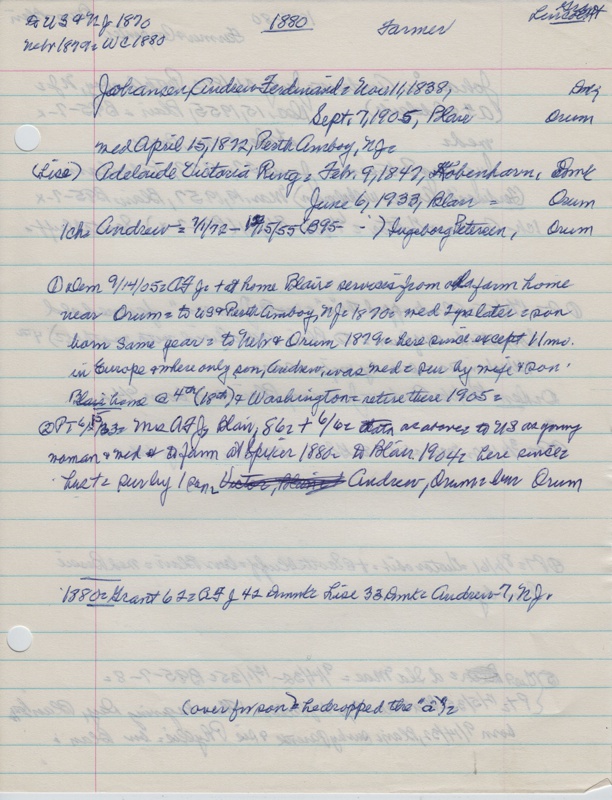 To US & NJ 1870 1880 Farmer Grant
Nebr 1879= WC 1880 Lincoln
Johansen, Andrew Ferdinand= Nov 11, 1838, Dmk
Sept. 7, 1905, Blair Orum
med April 15, 1872, Perth Amboy, NJ=
(Lise) Adelaide Victoria Ring= Febr. 9, 1847, Kobenhavn, Dmk
June 6, 1933, Blair = Orum
1ch= Andrew= 7/1/72 - 12/15/55 (B95- - ) Ingeborg Petersen, Orum
① Dem 9/14/05= AFJ= + at home Blair= services from old farm home
near Orum= to US & Perth Amboy, NJ= 1870= med 2 yrs later= son
born same year= to Nebr & Orum 1879= here since except 11 mo.
in Europe & where only son, Andrew, was med= sur by wife & son
Blair home @ 4th (18th) & Washington= retire there 1905=
② PT 6/15/33= Mrs AFJ, Blair, 86= + 6/6= data as above= to US as young
woman & med & to farm at Spiker 1880= to Blair 1904= here since=
Luth= sur by 1 son= Andrew, Orum= bur Orum
1880= Grant 62= AFJ 42 Dmmk= Lise 33 Dmk= Andrew-7, NJ.
(over for son)= he dropped the "a")=